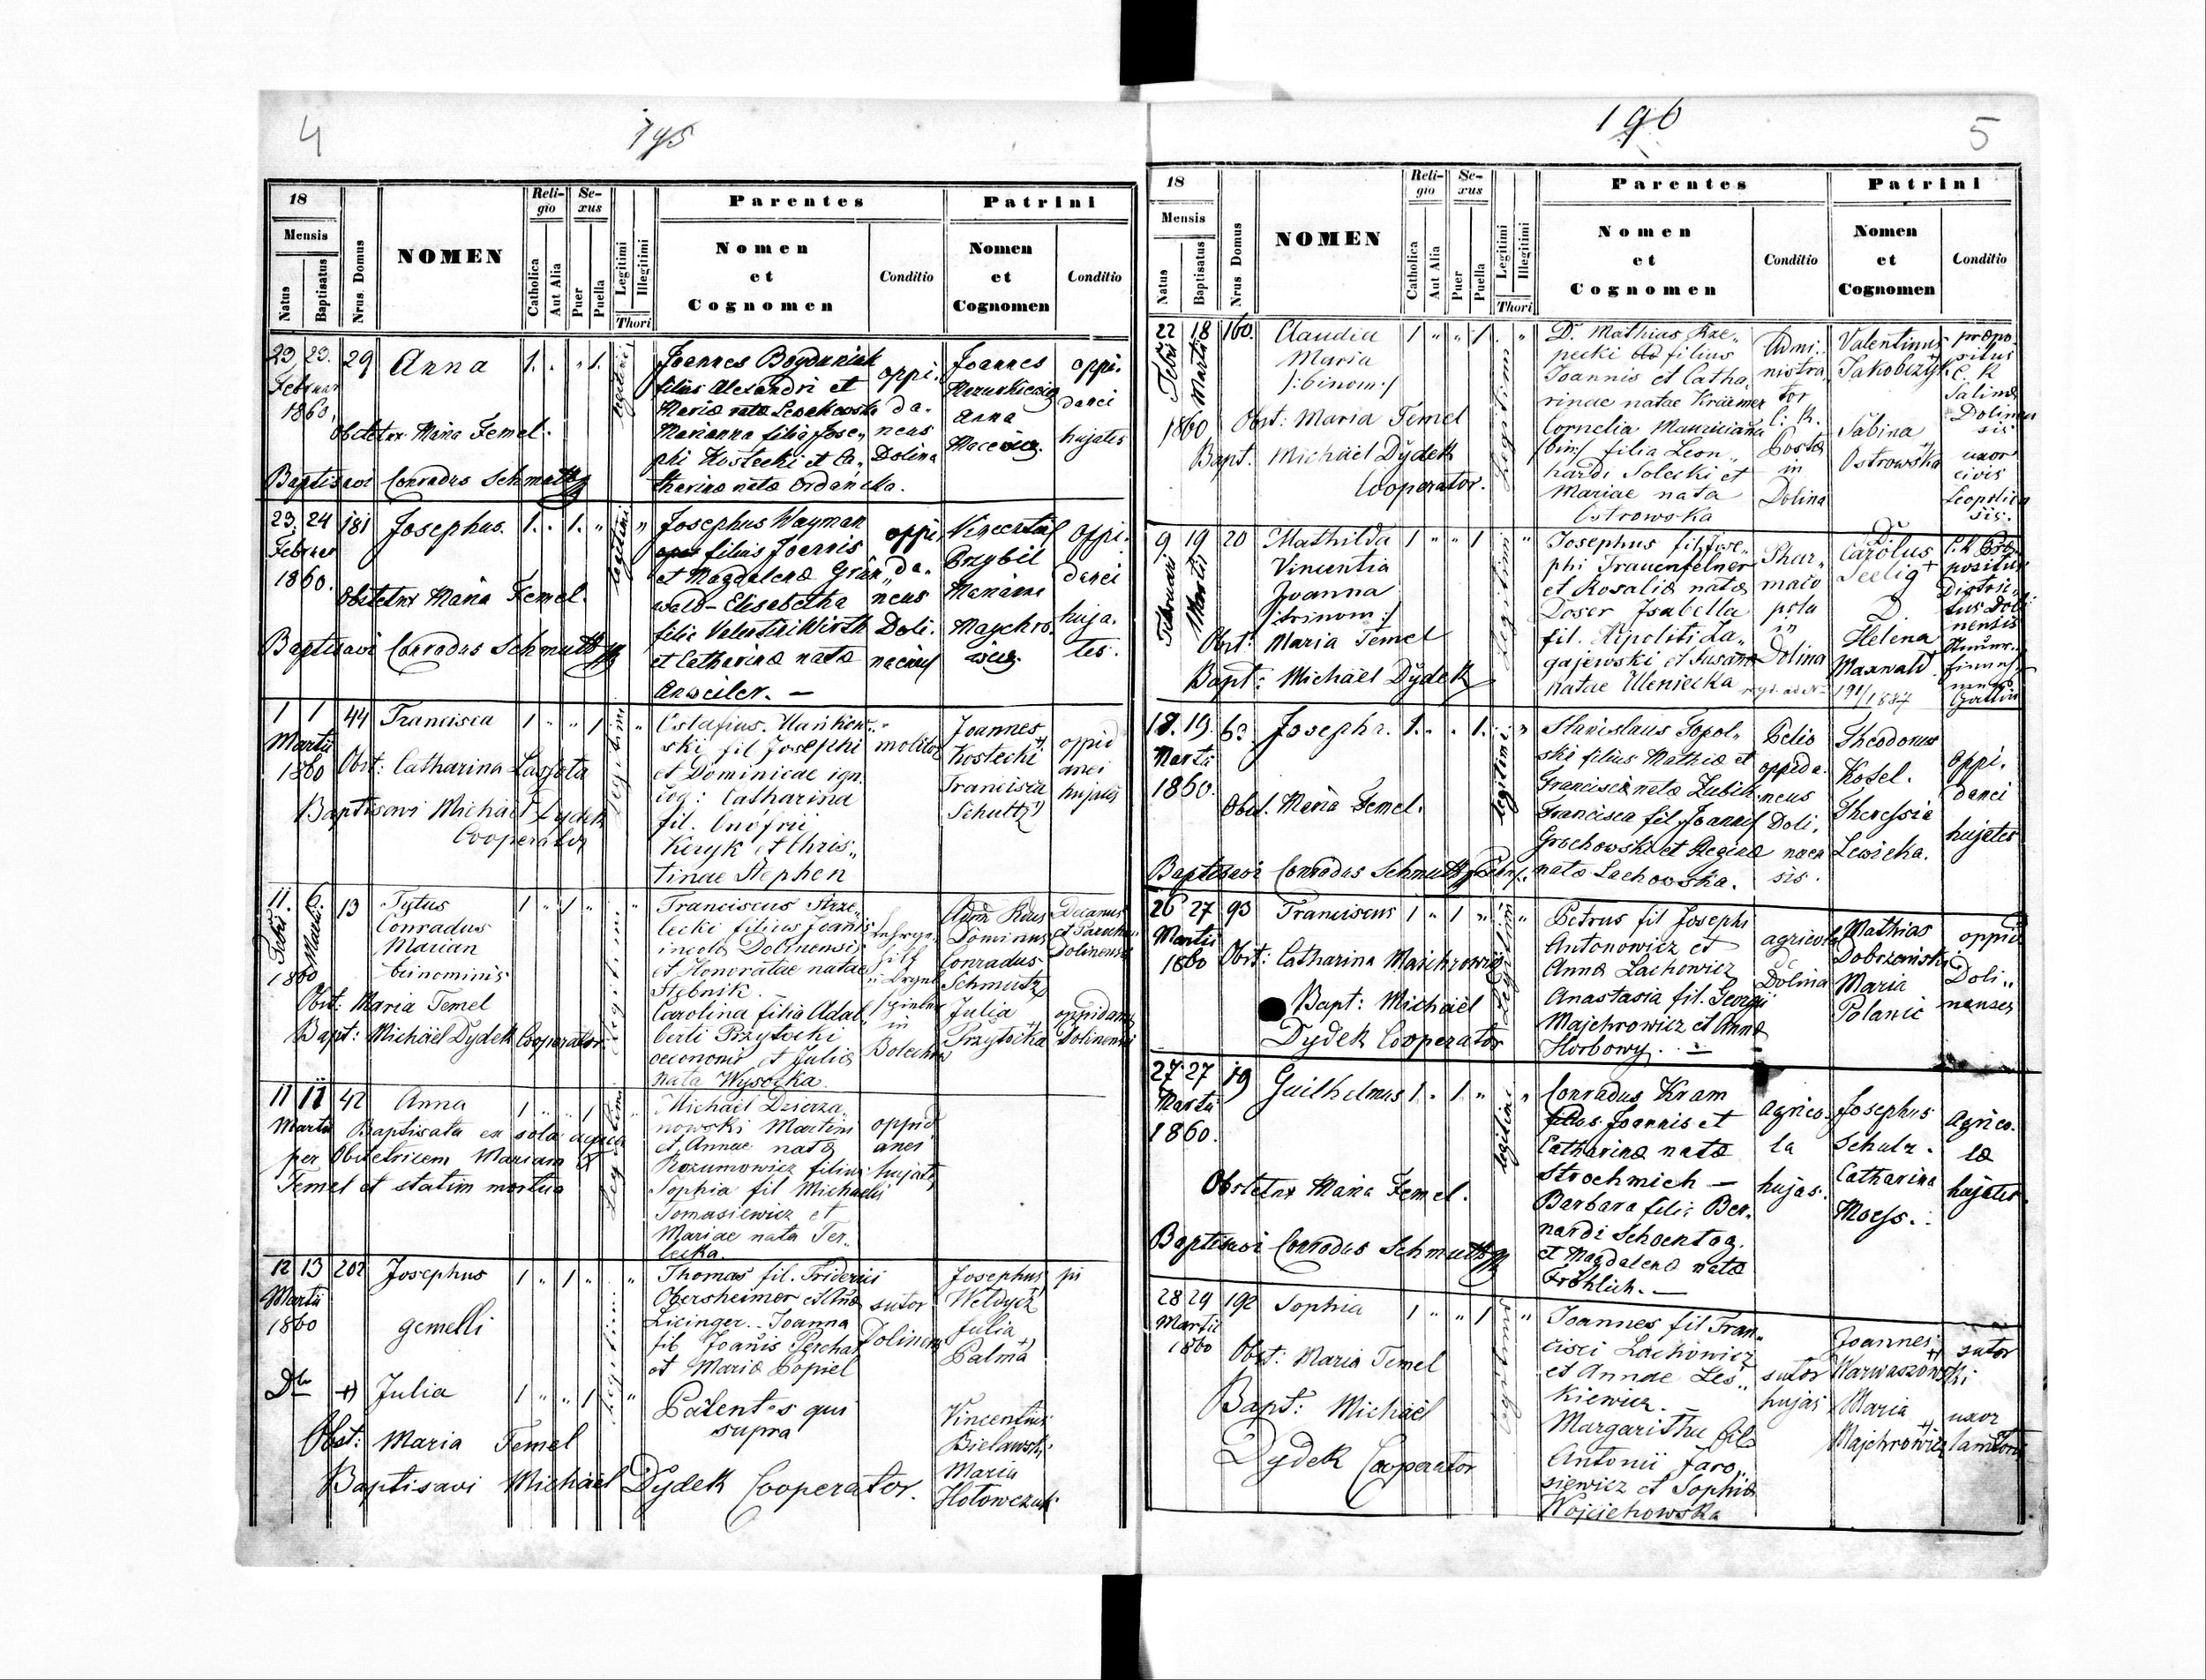 4
195
18
Mensis
Natus
Baptisatus
Nrus. Domus
NOMEN
Reli-
gio
Catholica
Aut Alia
Se-
xus
Puer
Puella
Legitimi
Illegitimi
Thori
Parentes
Nomen
et
Cognomen
Conditio
Patrini
Nomen
et
Cognomen
Conditio
23 23. 29 Anna 1. " " 1.
Februar
1860.
Obstetrix Maria Temel.
Baptisavi Conradus Schmutz
legitimi
Joannes Bogdaniuk
filius Alexandri et
Maria nata
Marianna filia Jose„
phi Kostecki et Ca„
tharina nata Ordancka.
oppi.
da„
neus
Dolina
Joannes
Anna
Macewicz.
oppi.
danei
hujates
23. 24 181 Josephus. 1. " 1. " "
Februar
1860.
Obstetrix Maria Temel.
Baptisavi Conradus Schmutz
legitimi
Josephus Wayman
filius Joannis
et Magdalena Grün„
wald - Elisabetha
filia Valentini Wirth
et Catharina nata
Anweiler. —
oppi
da„
neus
Doli.
Vincentius
Przybil
Mariana
Maychro„
wicz.
oppi.
danei
huja.
tes.
1 1 44 Francisca 1 " " 1 "
Martii
1860
Obst: Catharina Lassota
Baptisavi Michaël Dydek
Cooperator
legitimi
ski fil Josephi
et Dominicae ign.
cog: Catharina
fil. Onofrii
Keryk et Chris„
tinae Stephen
molitor
Joannes
Kostecki
Francisca
Schultz
oppid
anei
hujates
11. 6. 13 Tytus 1 " 1 "
Febr.
Martii
1860
Conradus
Marian
binominis
Obst: Maria Temel
Bapt: Michaël Dydek Cooperator
legitimi
Franciscus Strze„
lecki filius Joanis
incola Dolinensis
et Honoratae natae
Stebnik.
Carolina filia Adal„
berti Przytocki
oeconomi et Julia
nata Wysocka.
in
Bolechow
Dominus
Conradus
Schmutz
Julia
Przytocka
Decanus
et Parochus
Dolinensis
oppidana
Dolinensis
11 11 42 Anna 1 " " 1 "
Martii
Baptisata ex sola aqua
per Obstetricem Mariam
Temel et statim mortua
legitimi
Michaël Dzierza„
nowski Martini
et Annae nata
Rozumowicz filius
Sophia fil Michaelis
Tomasiewicz et
Mariae nata Ter„
lecka.
oppid
anei
hujates
12 13 202 Josephus 1 " 1 " "
Martii
1860
gemelli
legitimi
Thomas fil. Friderici
Obersheimer et Anna
Licinger. Joanna
fil Joanis Perchar
et Maria Popiel
sutor
Dolinens
Josephus
Weldycz
Julia
Palma
Dto Julia 1 " " 1 "
Parentes qui
supra
Obst: Maria Temel
Baptisavi Michaël Dydek Cooperator.
Vincentius
Bielawski
Maria
Hotowczuk
196
5
18
Mensis
Natus
Baptisatus
Nrus Domus
NOMEN
Reli-
gio
Catholica
Aut Alia
Se-
xus
Puer
Puella
Legitimi
Illegitimi
Thori
Parentes
Nomen
et
Cognomen
Conditio
Patrini
Nomen
et
Cognomen
Conditio
22 18 160. Claudia 1 " " 1 "
Febri
Martii
1860
Maria
/:binom:/
Obst: Maria Temel
Bapt. Michaël Dydek
Cooperator.
Legitimi
D. Mathias Rze„
pecki filius
Joannis et Catha„
rinae natae Kraemer
Cornelia Mauriciana
/bin/ filia Leon„
hardi Solecki et
Mariae nata
Ostrowska
Admi„
nistra„
tor
C. R.
Posta
in
Dolina
Valentinus
Jakobczyk
Sabina
Ostrowska
praepo„
situs
C. R
Salinae
Dolinen
sis
uxor
civis
Leopolien
sis.
9 19 20 Mathilda 1 " " 1 "
Februarii
Martii
Vincentia
Joanna
/:trinom:/
Obst: Maria Temel
Bapt: Michaël Dydek
Legitimi
Josephus fil Jose„
phi Frauenfelner
et Rosalia nata
Doser Isabella
fil. Hipoliti Za„
gajewski et Susana
natae Uleniecka
Phar„
maco
pola
in
Dolina
D
Carolus
Seelig
D.
Helena
Maxwald
191/1887
18. 19. 62 Josepha. 1. " " 1. "
Martii
1860.
Obst. Maria Temel.
Baptisavi Conradus Schmutz
legitimi
Stanislaus Topol„
ski filius Mathia et
Francisca nata Zubik
Francisca fil. Joannis
Grochowski et Regina
nata Lachowska.
Pelio
oppida„
neus
Doli„
nen
sis.
Theodorus
Kosel.
Theressia
Lewicka.
oppi.
danei
hujates
26 27 93 Franciscus 1 " 1 " "
Martii
1860
Obst: Catharina Maichrowicz
Bapt: Michaël
Dydek Cooperator
Legitimi
Petrus fil Josephi
Antonowicz et
Anna Lachowicz
Anastasia fil. Georgii
Majchrowicz et Anna
Horbowy. —
agricola
Dolina
Mathias
Dobrzanski
Maria
Polanic
oppid
Doli„
nenses
27 27 19 Guilhelmus 1 " 1 " "
Martii
1860.
Obstetrix Maria Temel.
Baptisavi Conradus Schmutz
legitimi
Conradus Kram
filius Joannis et
Catharina nata
Strochmich —
Barbara filia Ber„
nardi Schoentag.
et Magdalena nata
Fröhlich. —
agrico„
la
hujas.
Josephus
Schulz.
Catharina
Moess.
agrico„
la
hujates.
28 29 192 Sophia 1 " " 1 "
Martii
1860
Obst: Maria Temel
Bapt: Michaël
Dydek Cooperator
legitimi
Joannes fil Fran„
cisci Lachowicz
et Annae Les„
kiewicz. —
Margaritha fil
Antonii Jaro„
siewicz et Sophia
Wojciechowska
sutor
hujas
Joannes
Warwaszowski
Maria
Majchrowicz
sutor
uxor